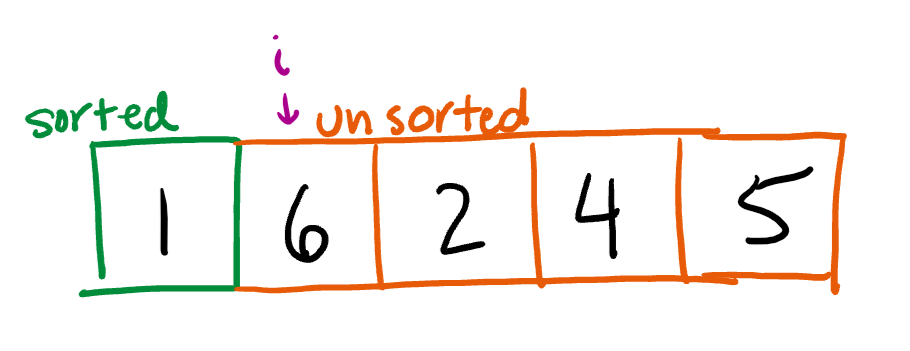 i
sorted unsorted
1 6 2 4 5